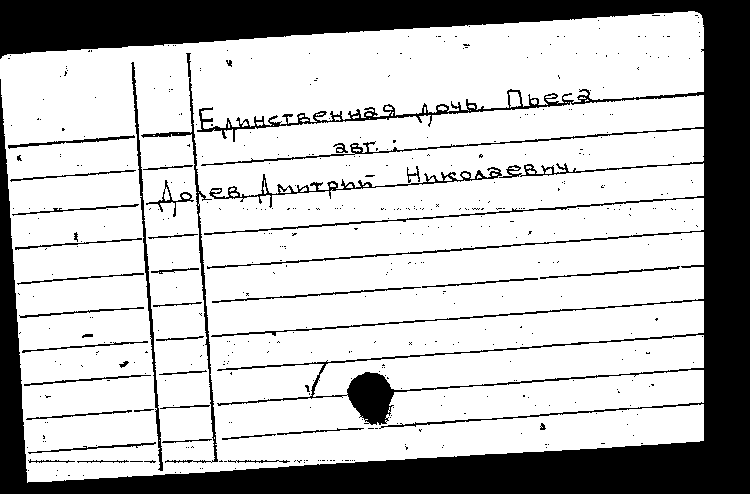 Единственная дочь. Пьеса
авт.:
Долев, Дмитрий Николаевич.